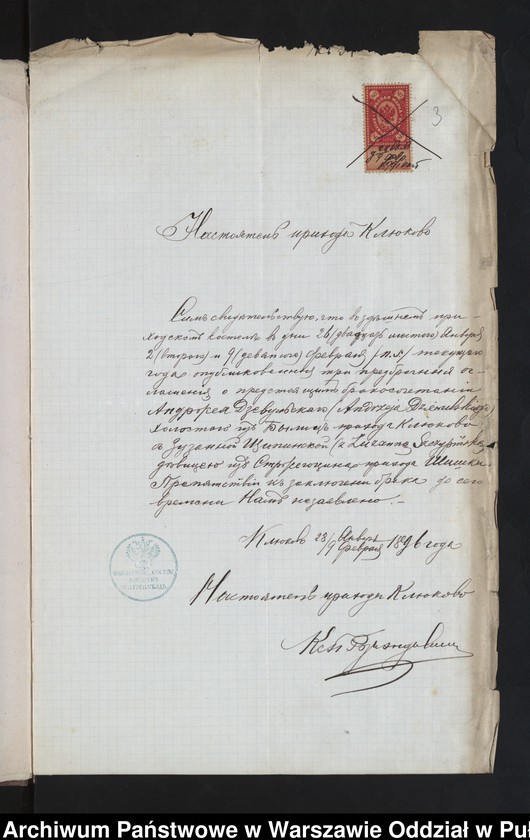 3
Настоятель прихода Клюково
Симъ свидѣтельствую, что въ здѣшнемъ при-
ходскомъ костелѣ въ дни 26 (двадцать шестого) Января
2 (второго) и 9 (девятого) Февраля (н. с.) текущаго
года публикованныя три предбрачныя ог-
лашенія о предстоящемъ бракосочетаніи
Андрея
холостого изъ прихода Клюково
а Зузанной (
дѣвицею изъ Стрегоцина прихода
Препятствій къ заключенію брака до сего
времени Намъ незаявлено. –
Клюково 28/9 Января/Февраля 1896 года
Настоятель прихода Клюково
Кс.
Archiwum Państwowe w Warszawie Oddział w Pu